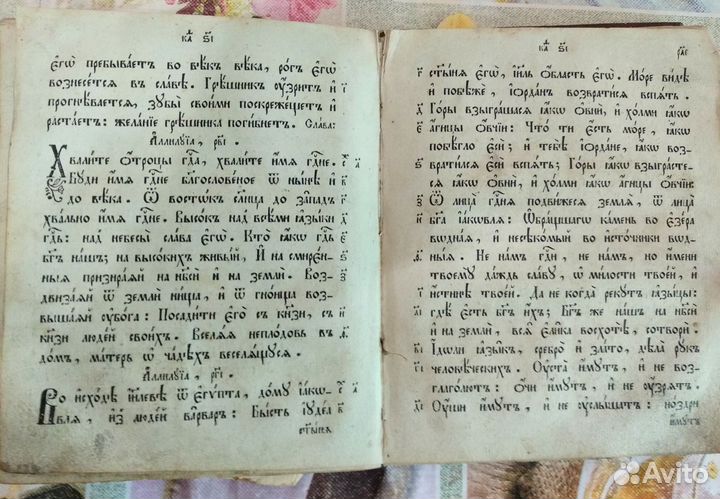 к҃а ѕ҃і
є҆гѡ̀ пребыва́етъ во вѣ́къ вѣ́ка, ро́гъ є҆гѡ̀
вознесе́тся въ сла́вѣ. Грѣ́шникъ ѹ҆́зритъ и҆
прогнѣ́вается, зѹбы̀ свои́ми поскреже́щетъ и҆
раста́етъ: жела́нїе грѣ́шника поги́бнетъ. Сла́ва:
А҆ллилѹ́їа, рв҃і.
Хвали́те ѻ҆́троцы гд҇а, хвали́те и҆́мя гд҇не.
Бѹ́ди и҆́мя гд҇не благослове́ное ѿ нн҃ѣ и҆
до вѣ́ка. Ѿ восто́къ сл҃нца до за́падъ
хва́льно и҆́мя гд҇не. Высо́къ над всѣ́ми ꙗ҆зы́ки
гд҇ь: над небесы̀ сла́ва є҆гѡ̀. Кто̀ ꙗ҆́кѡ гд҇ь
бг҃ъ на́шъ; на высо́кихъ живы́й, И҆ на смире́н-
ныя призира́яй на нб҃сѝ и҆ на землѝ. Воз-
двиза́яй ѿ землѝ ни́ща, и҆ ѿ гно́ища воз-
выша́яй ѹ҆бо́га: Посади́ти є҆го̀ с кн҃зи, съ
кн҃зи люде́й свои́хъ. Вселя́я непло́довь в
до́мъ, ма́терь ѡ҆ ча́дѣхъ веселя́щѹся.
А҆ллилѹ́їа, рг҃і.
Во и҆схо́дѣ і҆и҃левѣ ѿ є҆гѵ́пта, до́мѹ і҆а́кѡ-
вля, и҆з люде́й ва́рваръ: Бы́сть і҆ѹде́а
ст҃ы́ня
к҃а ѕ҃і
рл҃е
ст҃ы́ня є҆гѡ̀, і҆и҃ль ѻ҆́бласть є҆гѡ̀. Мо́ре ви́дѣ
и҆ побѣжѐ, і҆ѻрда́нъ возврати́ся вспя́ть.
Го́ры взыгра́шася ꙗ҆́кѡ ѻ҆внѝ, и҆ хо́лми ꙗ҆́кѡ
а҆́гницы ѻ҆́вчїи: Что́ ти є҆́сть мо́ре, ꙗ҆́кѡ
побѣ́гло є҆сѝ; и҆ тебѣ̀ і҆ѻрда́не, ꙗ҆́кѡ воз-
врати́лся є҆сѝ вспя́ть; Го́ры ꙗ҆́кѡ взыгра́сте-
ся ꙗ҆́кѡ ѻ҆внѝ, и҆ хо́лми ꙗ҆́кѡ а҆́гницы ѻ҆́вчїи:
Ѿ лица̀ гд҇ня подви́жеся земля̀, ѿ лица̀
бг҃а і҆а́кѡвля: Ѻ҆бра́щшагѡ ка́мень во є҆зе́ра
вѡ́дная, и҆ несѣко́мый во и҆сто́чники вѡд-
ны́я. Не на́мъ гд҇и, не на́мъ, но и҆́мени
твоемѹ̀ да́ждь сла́вѹ, ѡ҆ ми́лости твое́й, и҆
и҆́стинѣ твое́й. Да не когда̀ рекѹ́тъ ꙗ҆зы́цы:
гдѣ̀ є҆́сть бг҃ъ и҆́хъ; Бг҃ъ же на́шъ на нб҃сѝ
и҆ на землѝ, вся̀ є҆ли́ка восхотѣ̀, сотворѝ.
І҆́дѡли ꙗ҆зы́къ, сребро̀ и҆ зла́то, дѣла̀ рѹ́къ
человѣ́ческихъ. Ѹ҆ста̀ и҆́мѹтъ, и҆ не воз-
глаго́лютъ: ѻ҆́чи и҆́мѹтъ, и҆ не ѹ҆́зрятъ.
Ѹ҆́ши и҆́мѹтъ, и҆ не ѹ҆слы́шатъ: но́здри
и҆́мѹтъ
Avito